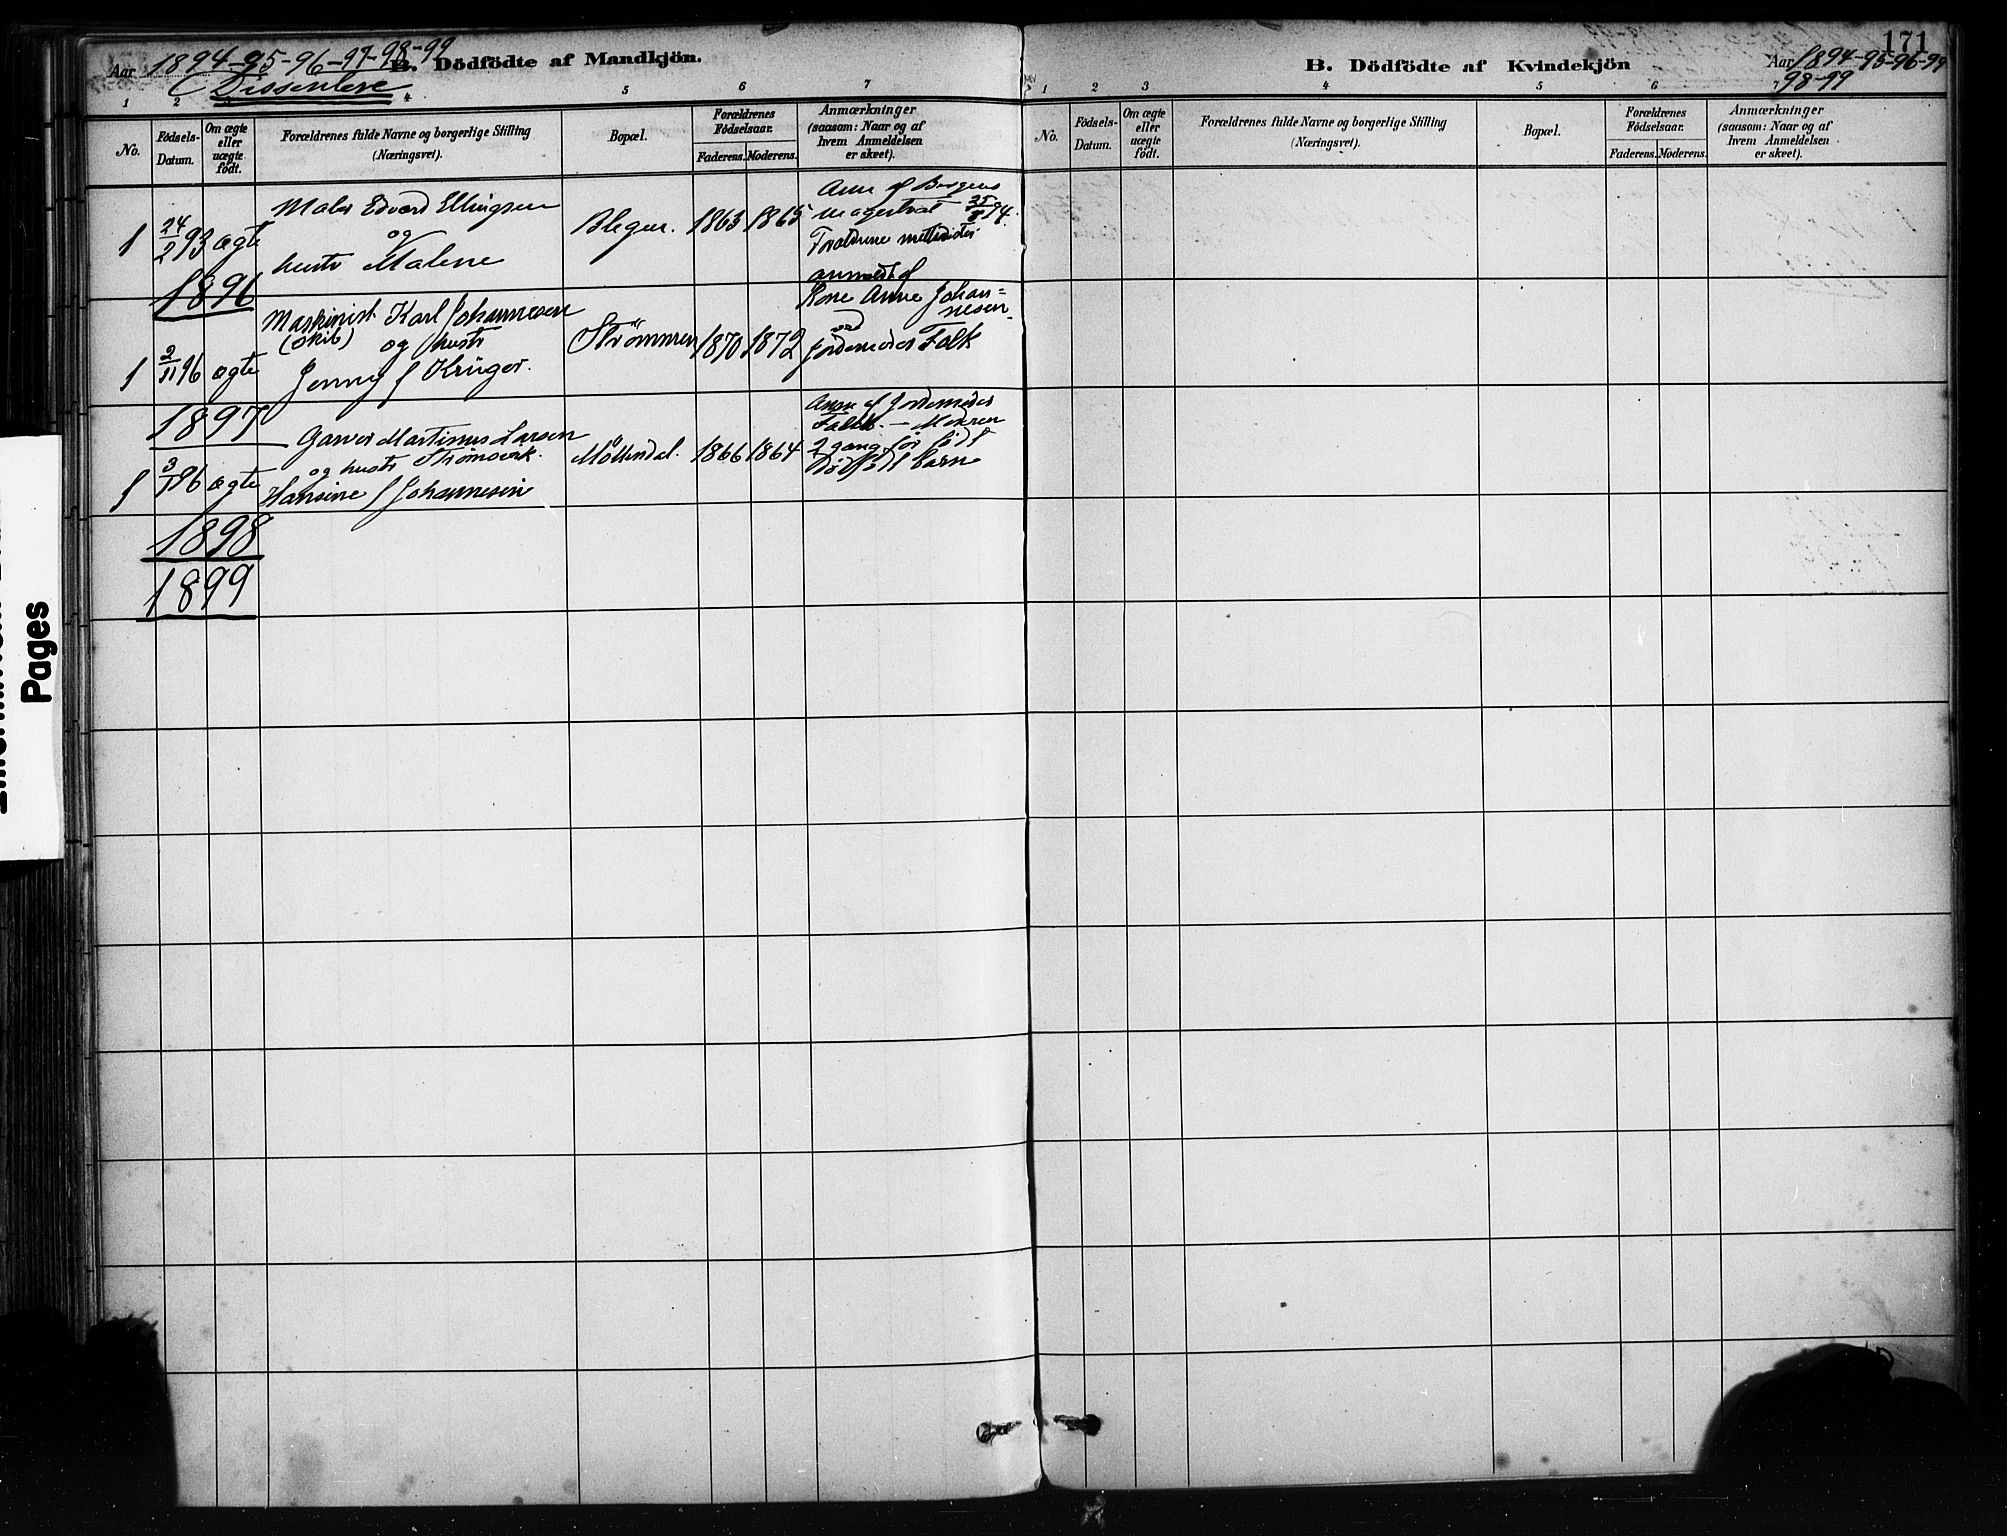 171
Aar 1894-95-96-97-98-99
B. Dödfödte af Mandkjön.
Dissentere
1 2 3 4 5 6 7
No.
Födsels-
Datum.
Om ægte
eller
uægte
födt.
Forældrenes fulde Navne og borgerlige Stilling
(Næringsvei).
Bopæl.
Forældrenes
Födselsaar.
Faderens. Moderens.
Anmærkninger
(saasom: Naar og af
hvem Anmeldelsen
er skeet).
1 24/2 93 ægte
Maler Edvard Ellingsen
og
hustr Malene
1863 1865
Anm af Bergens
magestrat 25/8 94.
Forældrene
1896
1 2/11 96 ægte
Maskinist Karl Johannesen
(skib) og hustr
Jenny f Krüger.
Strömmen 1870 1872
anmeldt af
Kone Anne Johan=
nesen
Jordemoder Falk
1897
1 3/1 96 ægte
Garver Martinus Larsen
og hustr
Hansine f Johannesen
Möllendal. 1866 1864
Anm af Jordemoder
Falk. — Modren
2 gang för födt
dödfödt barn
1898
1899
B. Dödfödte af Kvindekjön
Aar 1894-95-96-97
98-99
1 2 3 4 5 6 7
No.
Födsels-
Datum.
Om ægte
eller
uægte
födt.
Forældrenes fulde Navne og borgerlige Stilling
(Næringsvei).
Bopæl.
Forældrenes
Födselsaar.
Faderens. Moderens.
Anmærkninger
(saasom: Naar og af
hvem Anmeldelsen
er skeet).
Pages